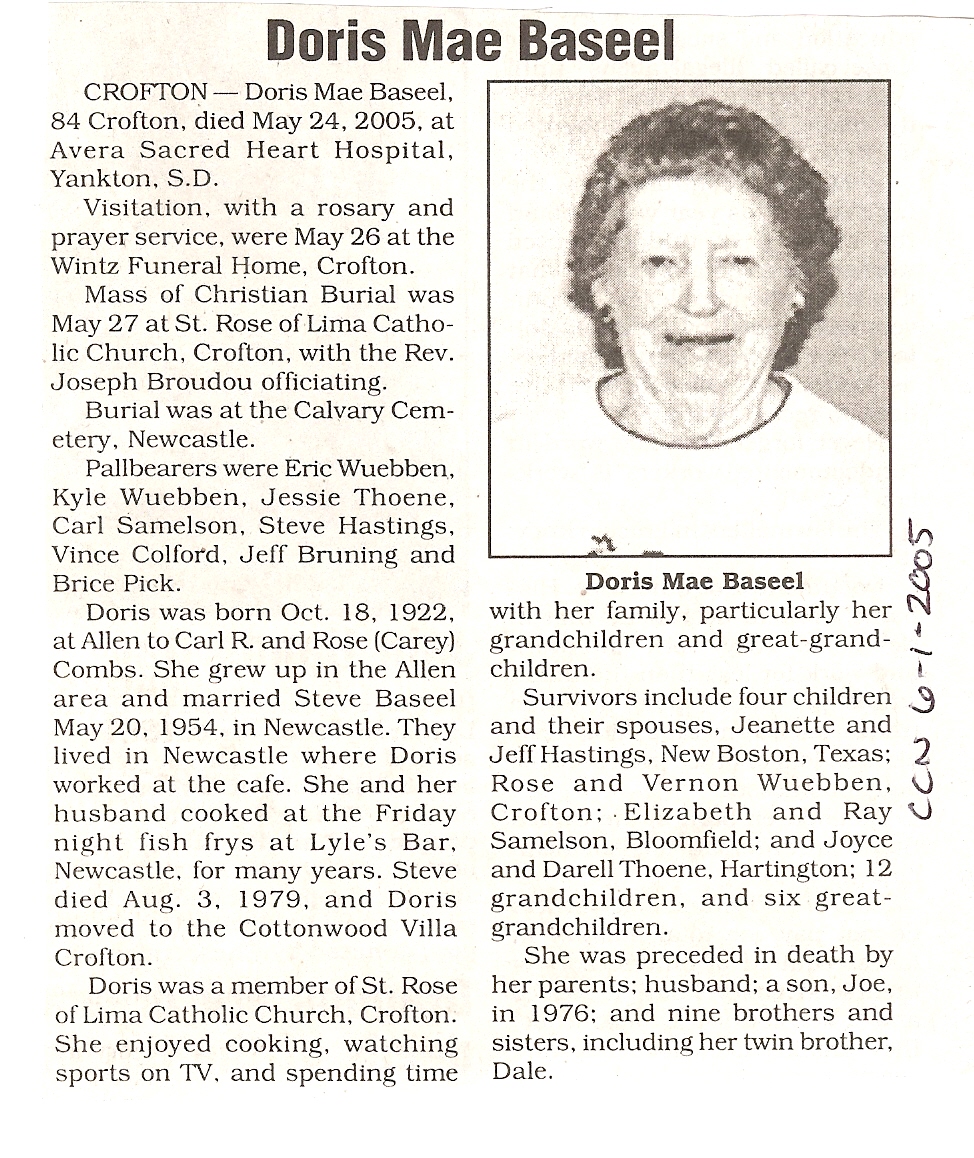 Doris Mae Baseel
CROFTON — Doris Mae Baseel,
84 Crofton, died May 24, 2005, at
Avera Sacred Heart Hospital,
Yankton, S.D.
Visitation, with a rosary and
prayer service, were May 26 at the
Wintz Funeral Home, Crofton.
Mass of Christian Burial was
May 27 at St. Rose of Lima Catho-
lic Church, Crofton, with the Rev.
Joseph Broudou officiating.
Burial was at the Calvary Cem-
etery, Newcastle.
Pallbearers were Eric Wuebben,
Kyle Wuebben, Jessie Thoene,
Carl Samelson, Steve Hastings,
Vince Colford, Jeff Bruning and
Brice Pick.
Doris was born Oct. 18, 1922,
at Allen to Carl R. and Rose (Carey)
Combs. She grew up in the Allen
area and married Steve Baseel
May 20, 1954, in Newcastle. They
lived in Newcastle where Doris
worked at the cafe. She and her
husband cooked at the Friday
night fish frys at Lyle's Bar,
Newcastle, for many years. Steve
died Aug. 3, 1979, and Doris
moved to the Cottonwood Villa
Crofton.
Doris was a member of St. Rose
of Lima Catholic Church, Crofton.
She enjoyed cooking, watching
sports on TV, and spending time
Doris Mae Baseel
with her family, particularly her
grandchildren and great-grand-
children.
Survivors include four children
and their spouses, Jeanette and
Jeff Hastings, New Boston, Texas;
Rose and Vernon Wuebben,
Crofton; Elizabeth and Ray
Samelson, Bloomfield; and Joyce
and Darell Thoene, Hartington; 12
grandchildren, and six great-
grandchildren.
She was preceded in death by
her parents; husband; a son, Joe,
in 1976; and nine brothers and
sisters, including her twin brother,
Dale.
6-1-2005